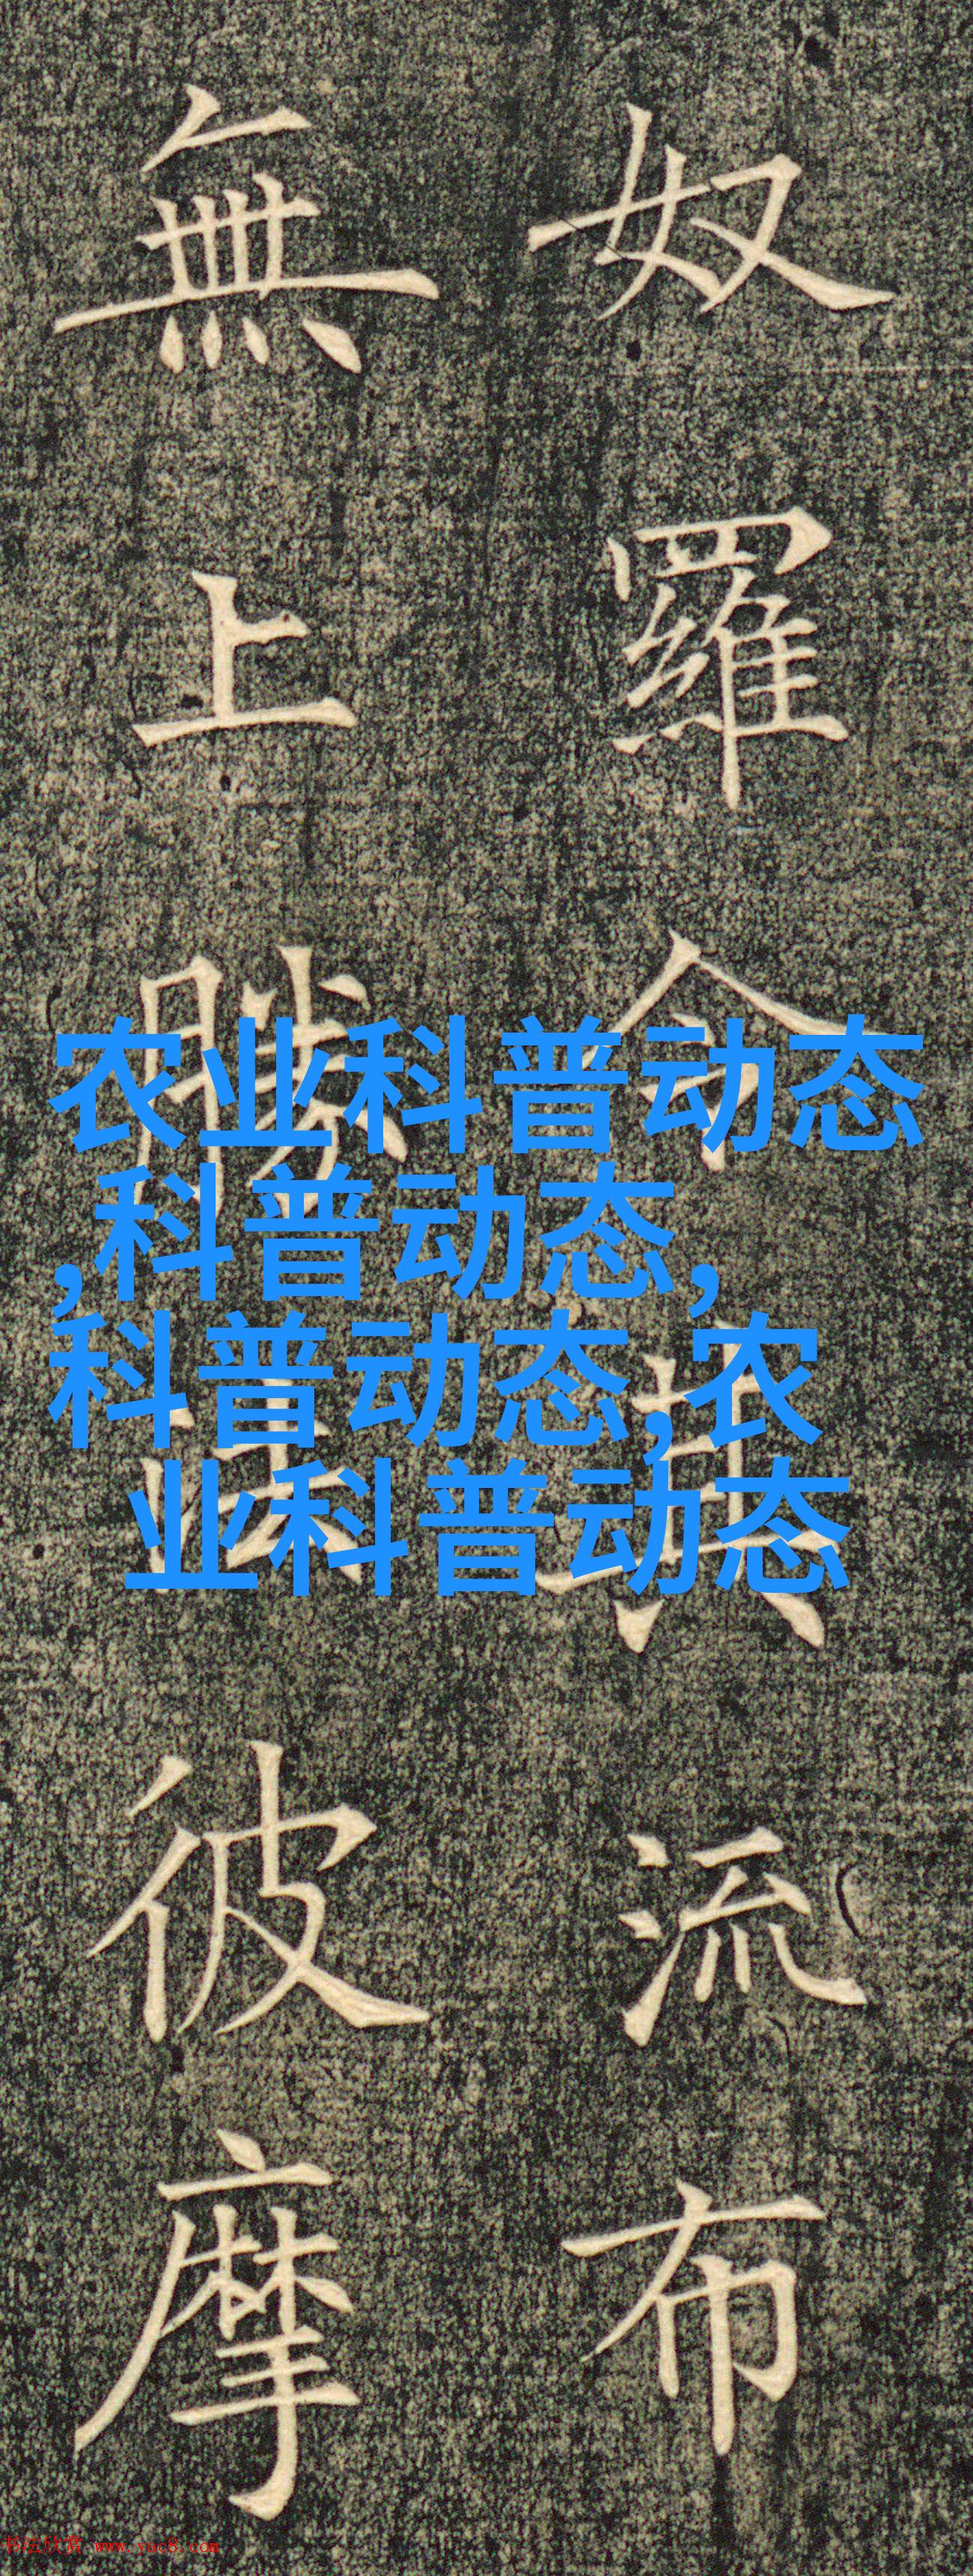 奴羅令其流布
無上勝法彼摩
农业科普动态
,科普动态,
科普动态,农
业科普动态
书法欣赏 www.yac8.com